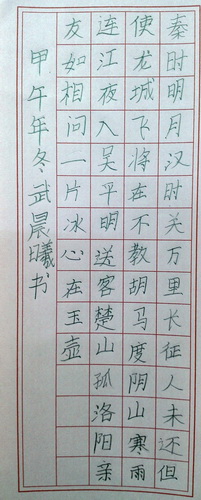 秦时明月汉时关万里长征人未还但
使龙城飞将在不教胡马度阴山寒雨
连江夜入吴平明送客楚山孤洛阳亲
友如相问一片冰心在玉壶
甲午年冬武晨曦书